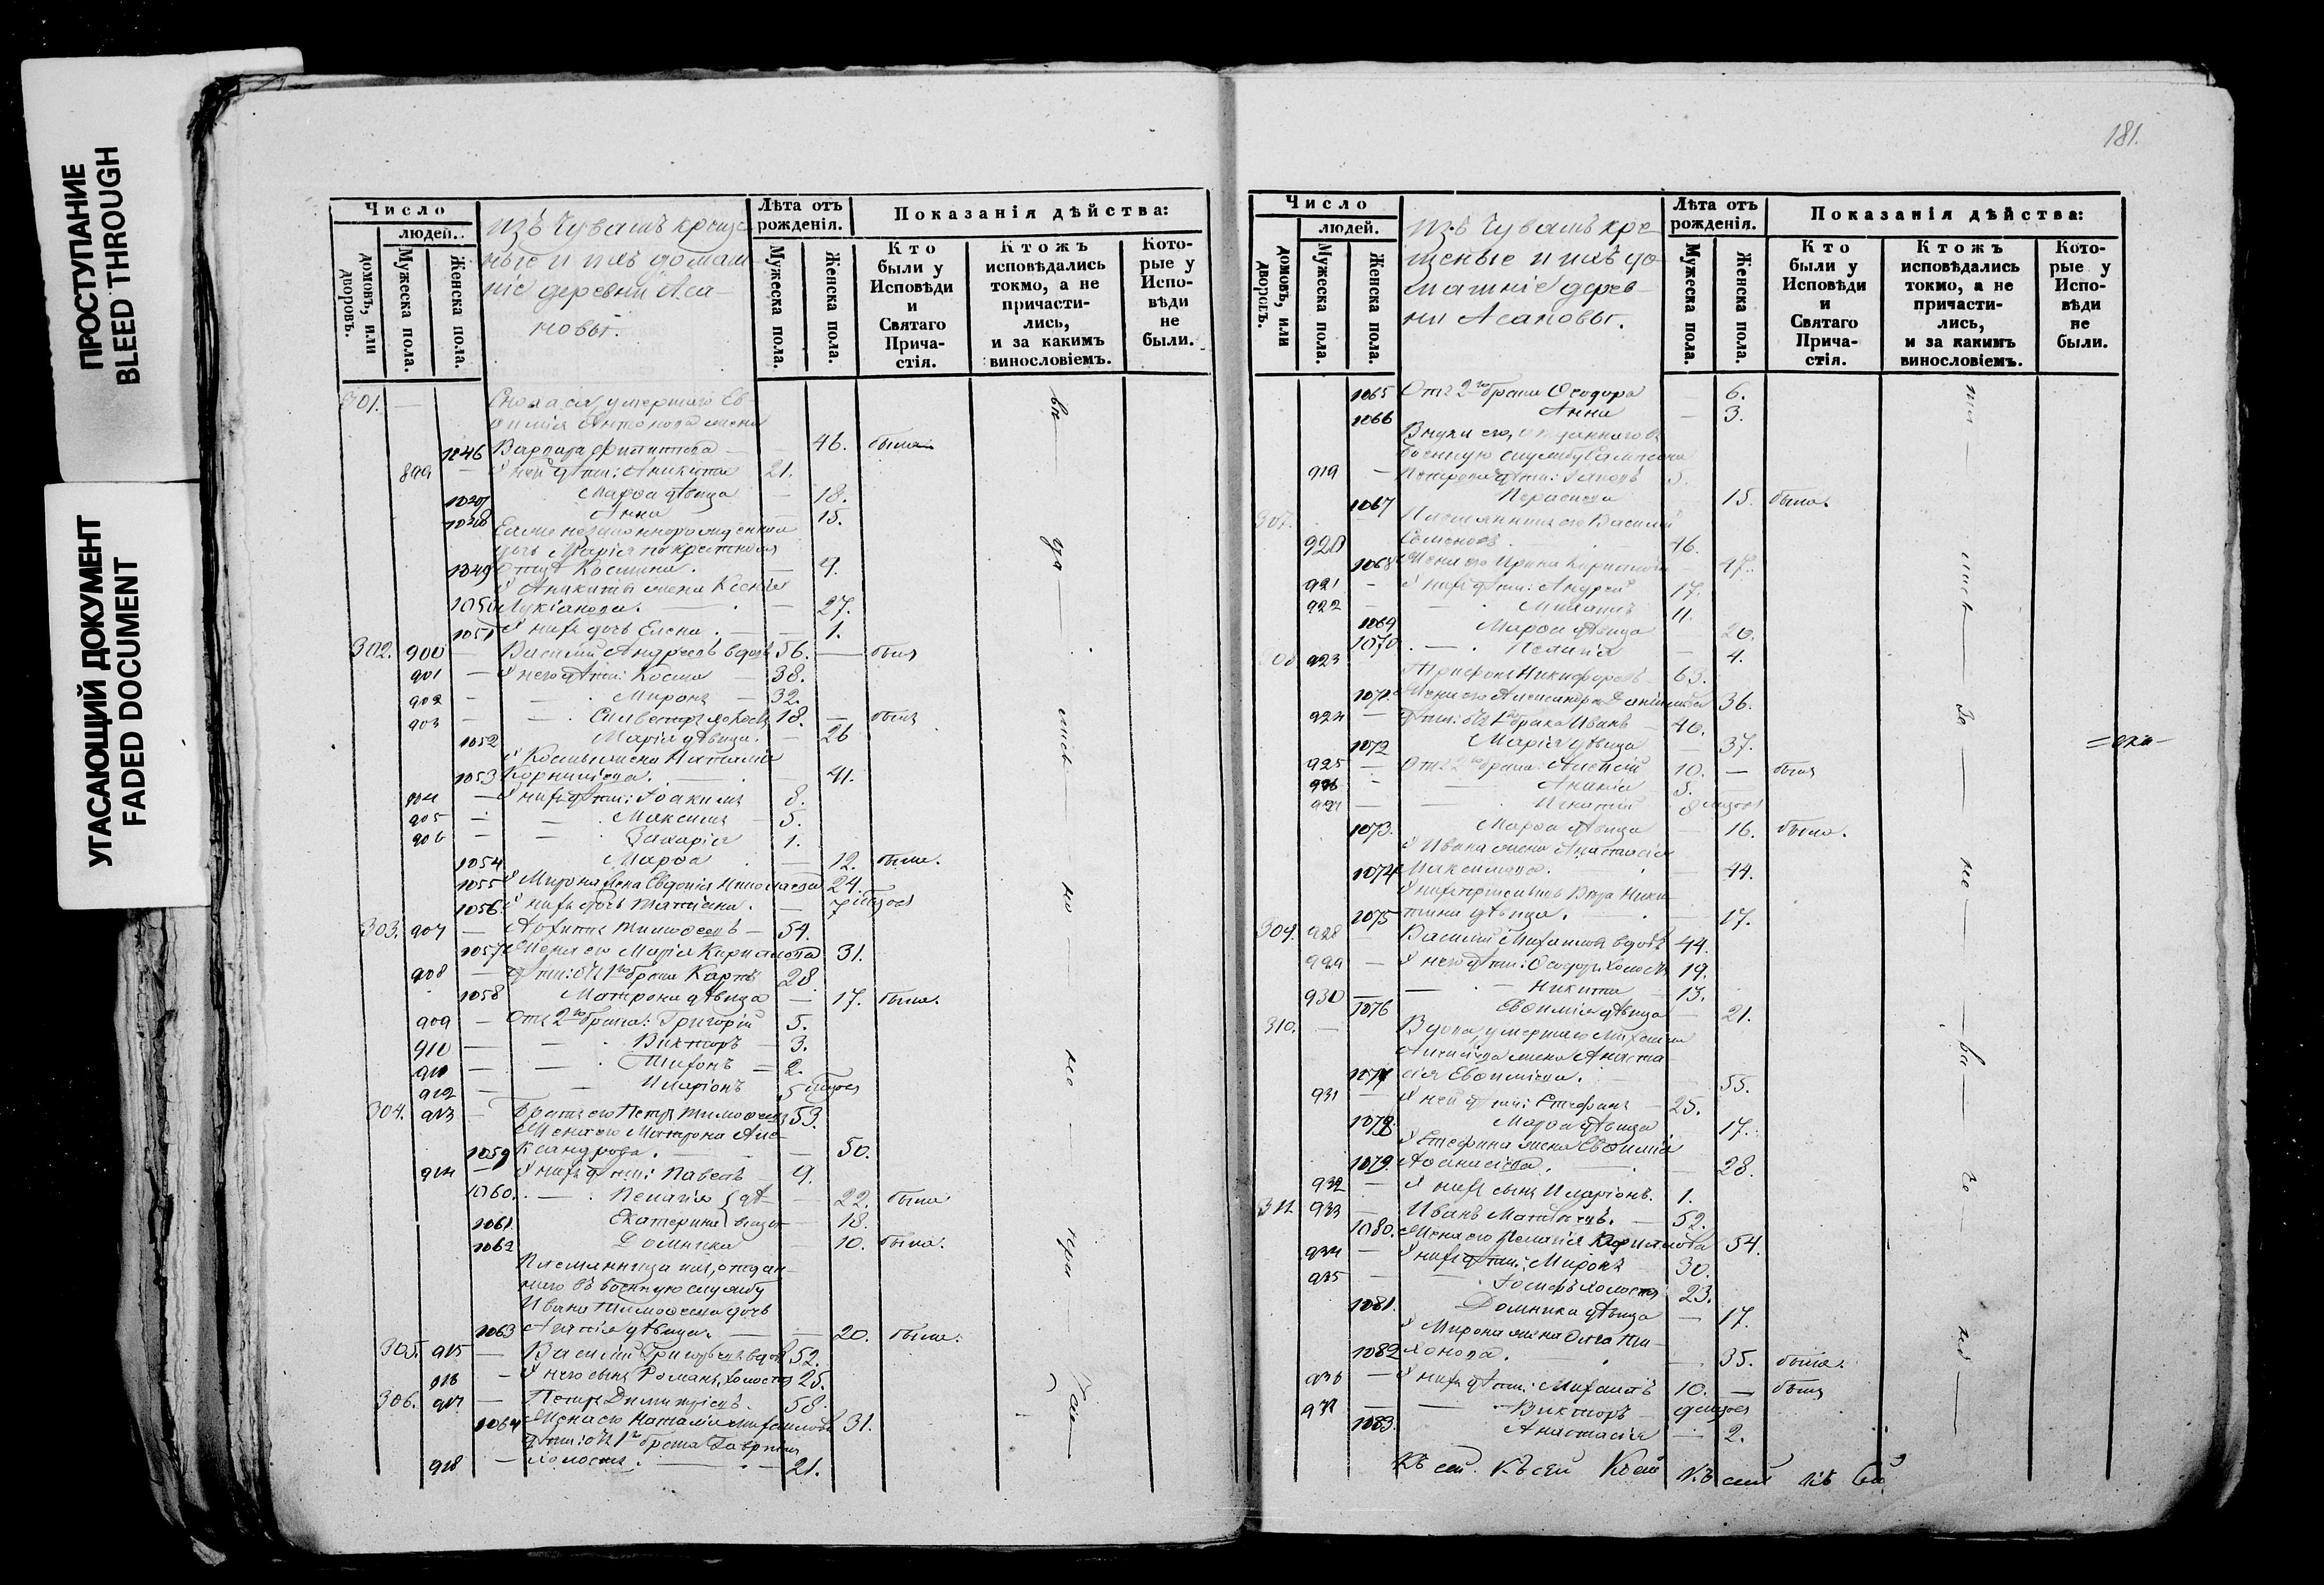 ПРОСТУПАНИЕ
BLEED THROUGH
УГАСАЮЩИЙ ДОКУМЕНТ
FADED DOCUMENT
Число
людей.
домовъ, или дворовъ.
Мужеска пола.
Женска пола.
изъ Чувашъ креще-
ные и ихъ домаш-
ніе деревни Аса-
новы.
Лѣта отъ рожденія.
Мужеска пола.
Женска пола.
Показанія дѣйства:
Кто были у Исповѣди и Святаго Прича-стія.
Ктожъ исповѣдались токмо, а не причасти-лись, и за какимъ винословіемъ.
Кото-рые у Испо-вѣди не были.
301. умершаго Ев
Антонова жена
1046 Варвара Филиппова 46. была
899 У ней дѣти: Аникита 21.
Марѳа дѣвица 18.
Анна 15.
дочь Марія по крестном
1049 отцѣ Косьмина. 4.
У Аникиты жена Ксенія
1050 Лукіанова. 27.
1051 У нихъ дочь Елена. 1.
302. 900 Василій Андреевъ вдовъ 56. былъ
901 У него дѣти: Косма 38.
902 Миронъ 32.
903 Сильвестръ холостъ 18. былъ
1052 Марія дѣвица. 26
У Космы жена Наталія
1053 Корнилова. 41.
904 У нихъ дѣти: Іоакимъ 8.
905 Максимъ 5.
906 Захарія 1.
1054 Марѳа 12. была.
1055 У Мирона жена Евдокія Николаева 24.
1056 У нихъ дочь Татіана. 7 мцовъ
303. 907 Архипъ Тимоѳеевъ 54.
1057 Жена его Марія Кириллова 31.
908 Дѣти: отъ 1го брака Карпъ 28
1058 Матрона дѣвица 17. была.
909 Отъ 2го брака: Григорій 5.
910 Викторъ 3.
911 Тихонъ 2.
912 Иларіонъ 5 мцовъ
304. 913 Братъ его Петръ Тимоѳеевъ 53.
Жена его Матрона Але-
1059 ксандрова. 50.
914 У нихъ дѣти: Павелъ 9.
1060. Пелагія дѣ- 22. была
1061 Екатерина вицы 18.
1062 Домника 10. была.
Племянница ихъ, отдан-
наго въ военную службу
Ивана Тимоѳеева дочь
1063 дѣвица. 20. была.
305. 915 Василій Григорьевъ вдовъ 52.
916 У него сынъ Романъ, холостъ 25.
306. 917 Петръ Димитріевъ. 58.
1064 Жена его Наталія Михаилова 31.
Дѣти: отъ 1го брака Гавріилъ
918 холостъ. 21.
181.
Число
людей.
домовъ, или дворовъ.
Мужеска пола.
Женска пола.
изъ Чувашъ кре-
щеные и ихъ до-
машніе дерев-
ни Асановы.
Лѣта отъ рожденія.
Мужеска пола.
Женска пола.
Показанія дѣйства:
Кто были у Исповѣди и Святаго Прича-стія.
Ктожъ исповѣдались токмо, а не причасти-лись, и за какимъ винословіемъ.
Кото-рые у Испо-вѣди не были.
1065 Отъ 2го брака Ѳеодора 6.
1066 Анна 3.
Внуки его, отданнаго въ
военную службу
919 Петрова дѣти: 5.
1067 Параскева 15. была.
307. Племянникъ его Василій
920 Семеновъ. 46.
1068 Жена его Ирина Кириллова 47.
921 У нихъ дѣти: Андрей 17.
922 11.
1069 Марѳа дѣвица 20.
1070 Пелагія 4.
308 923 Трифонъ Никифоровъ 63.
1071 Жена его Александра 36.
924 Дѣти: отъ 1го брака Иванъ 40.
1072 Марія дѣвица 37.
925 Отъ 2го брака: Алексій 10. былъ
926 Ананія 5.
927 Игнатій 8 мцовъ
1073. Марѳа дѣвица 16. была.
У Ивана жена Анастасія
1074 Максимова. 44.
Вѣра Ники-
1075 тина дѣвица. 17.
309. 928 Василій Михаиловъ вдовъ 44.
929 У него дѣти: Ѳеодоръ холостъ 19.
930 Никита 13.
1076 Евѳимія дѣвица 21.
310. Вдова, умершаго Михаила
Алексѣева жена Анаста
1077 сія Евѳимова. 55.
931 У ней дѣти: Стефанъ 25.
1078 Марѳа дѣвица 17.
У Стефана жена Евѳимія
1079. Аѳанасіева. 28.
932 У нихъ сынъ Иларіонъ. 1.
311. 933 Иванъ Матвѣевъ. 52.
1080. Жена его Пелагія Кириллова 54.
934 У нихъ дѣти: Миронъ 30.
935 Іосифъ холостъ 23.
1081. Домника дѣвица 17.
У Мирона жена Ольга Ти-
1082 хонова. 35. была.
936 У нихъ дѣти: Михаилъ 10. былъ
937 Викторъ 9 мцовъ
1083. Анастасія 2.
Къ сей Къ сей Къ сей Къ сей Къ Сей